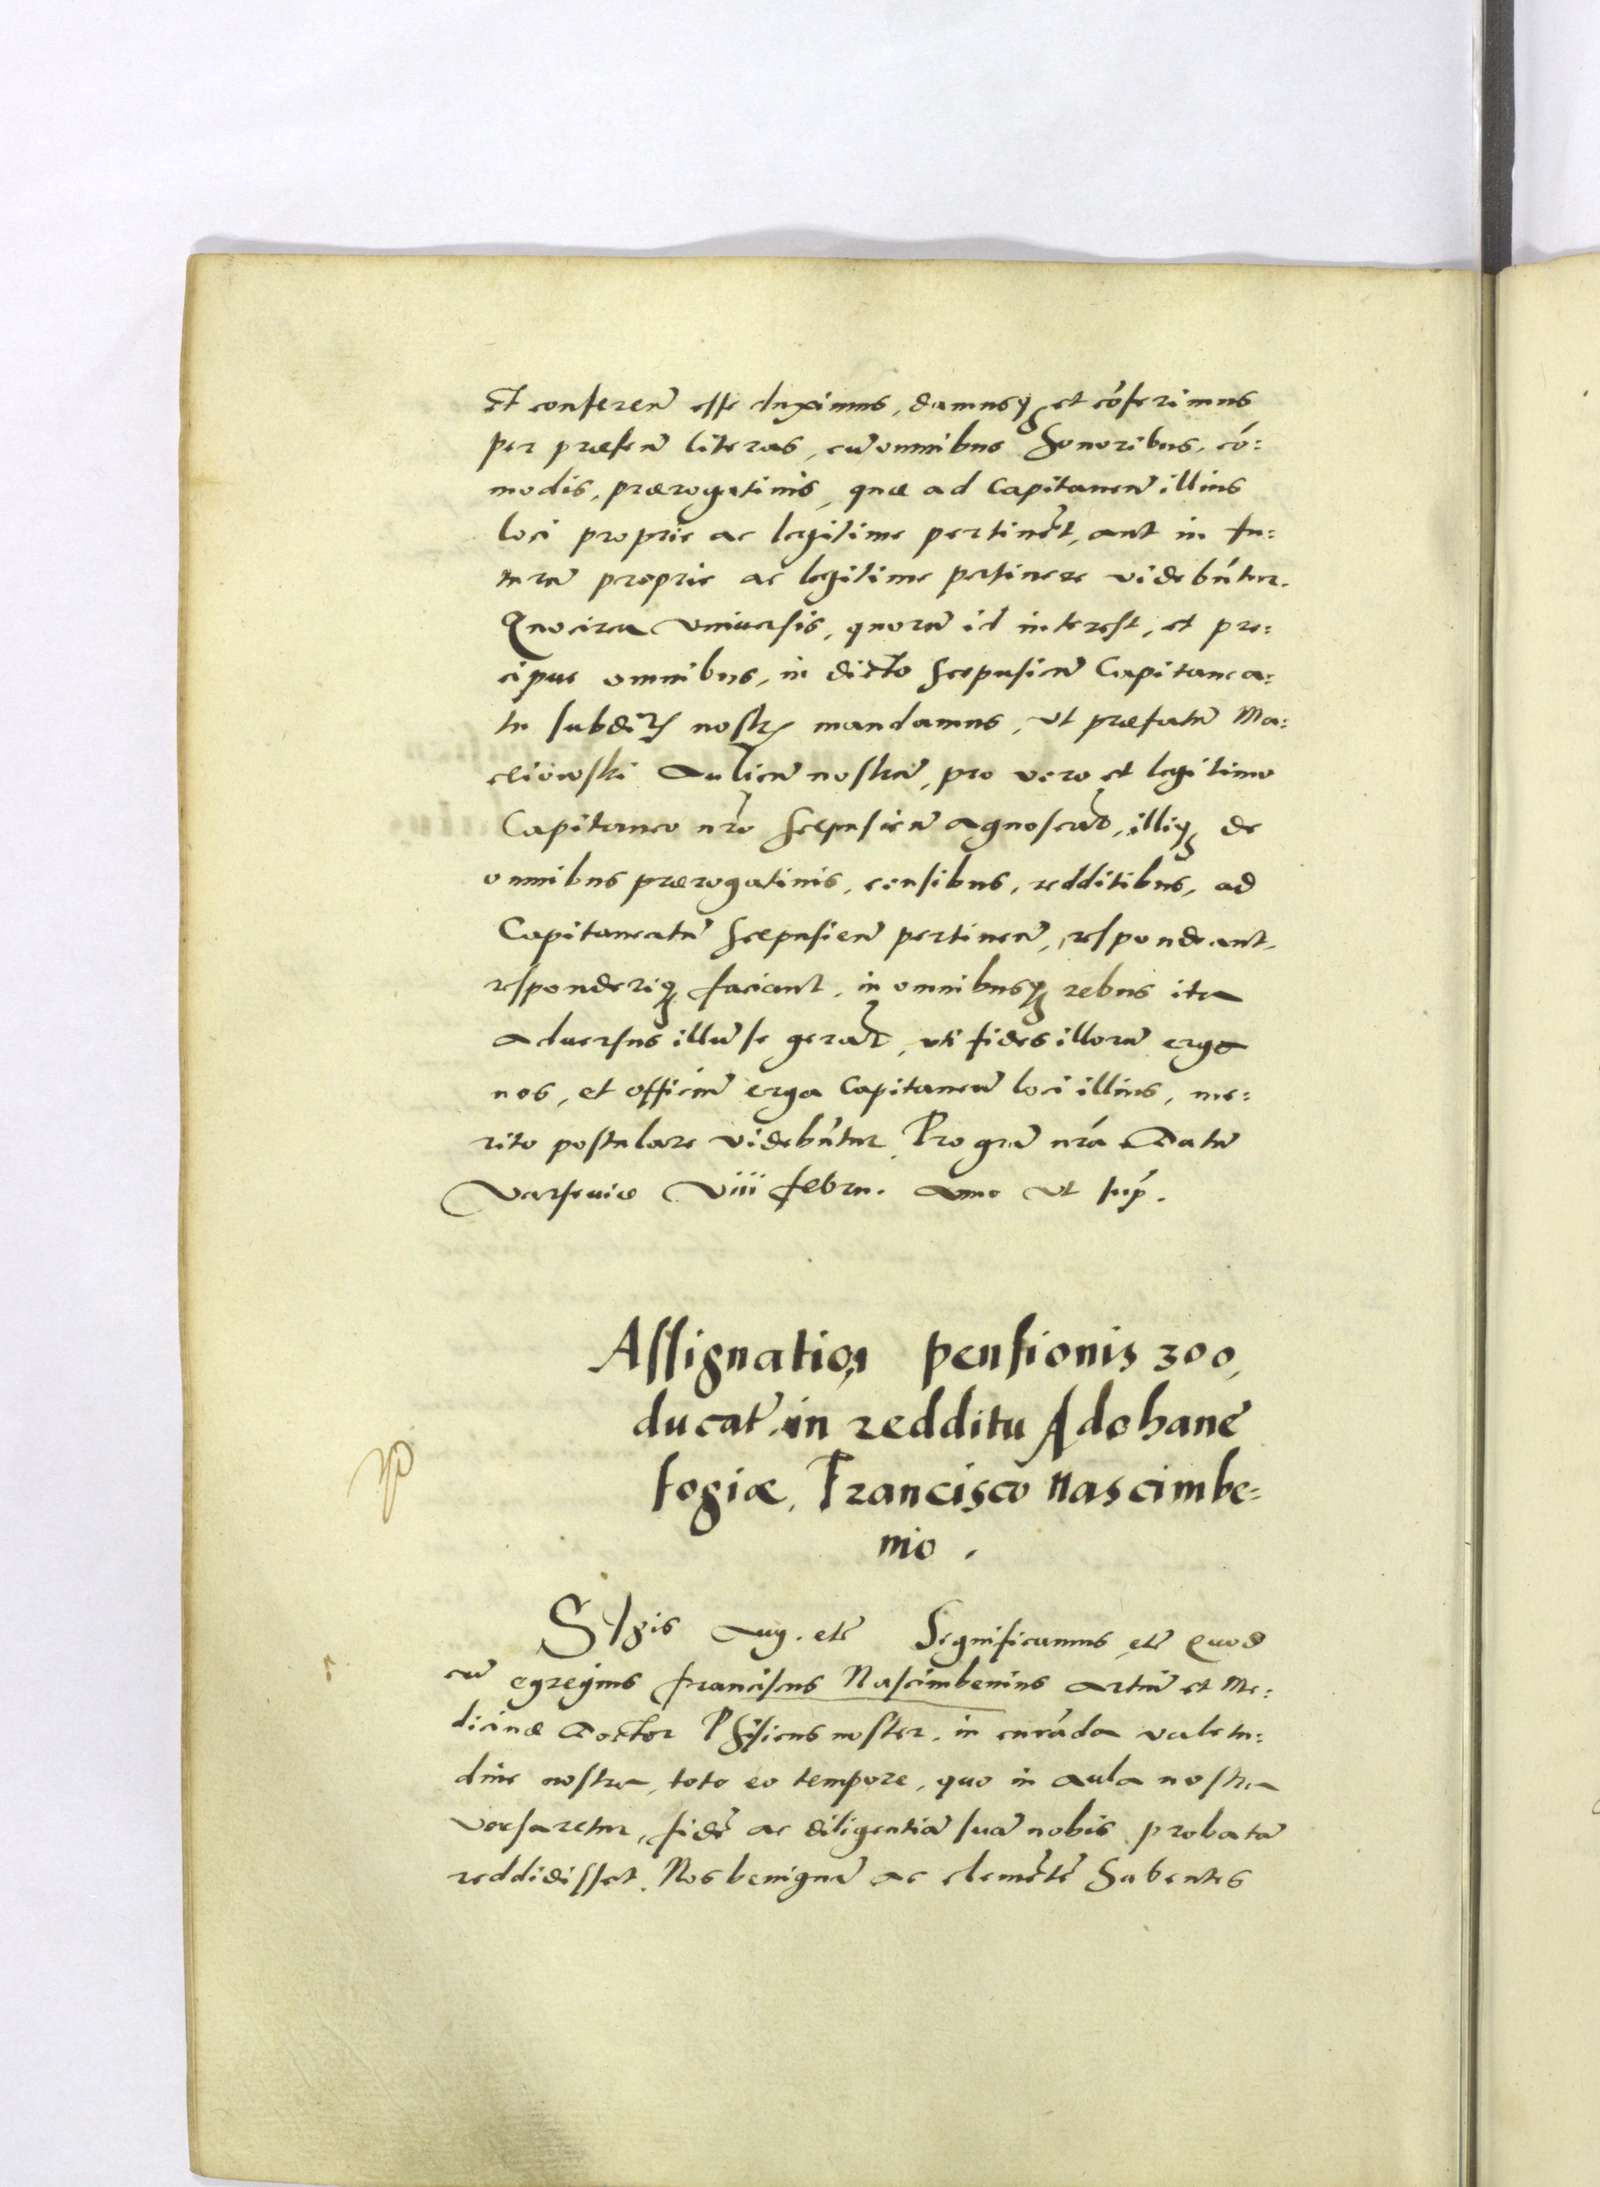 Et conferen̄ esse duximus, damusq; et cōferimus
per præsen̄ literas, cū omnibus honoribus, cō:
modis, prærogativis, quæ ad Capitaneū illius
loci proprie ac legitime pertinēt, aut in fu:
turū proprie ac legitime pertinere videbūtur.
Quocirca universis, quorū id interest, et præ:
cipue omnibus, in dicto Scepusien̄ Capitanea:
tu subditis nostris mandamus, ut præfatū Ma:
cieiowski Aulicū nostrū, pro vero et legitimo
Capitaneo nr̄o Scepusien̄ agnoscāt, illiq; de
omnibus prærogativis, censibus, redditibus, ad
Capitaneatū Scepusien̄ pertinen̄, respondeant,
responderiq; faciant, in omnibusq; rebus ita
adversus illū se gerāt, uti fides illorū erga
nos, et officiū erga Capitaneū loci illius, me:
rito postulare videbūtur. Pro gr̄a nr̄a Datū
Varsevice VIII febru. Anno ut sup̄.
Assignatio pensionis 300,
ducat̄. in redditu Adohanē
fogiæ, Francisco Nascimbe:
nio.
S Agis Aug. etc̄ Significamus etc̄ Quod
cū egregius Franciscus Nascimbenius artiū et Me:
dicinæ Doctor Phisicus noster, in curāda valetu:
dine nostra, toto eo tempore, quo in aula nostra
versaretur, fidē ac diligentiā suā nobis probatā
reddidisset. Nos benignā ac clemētē habentes